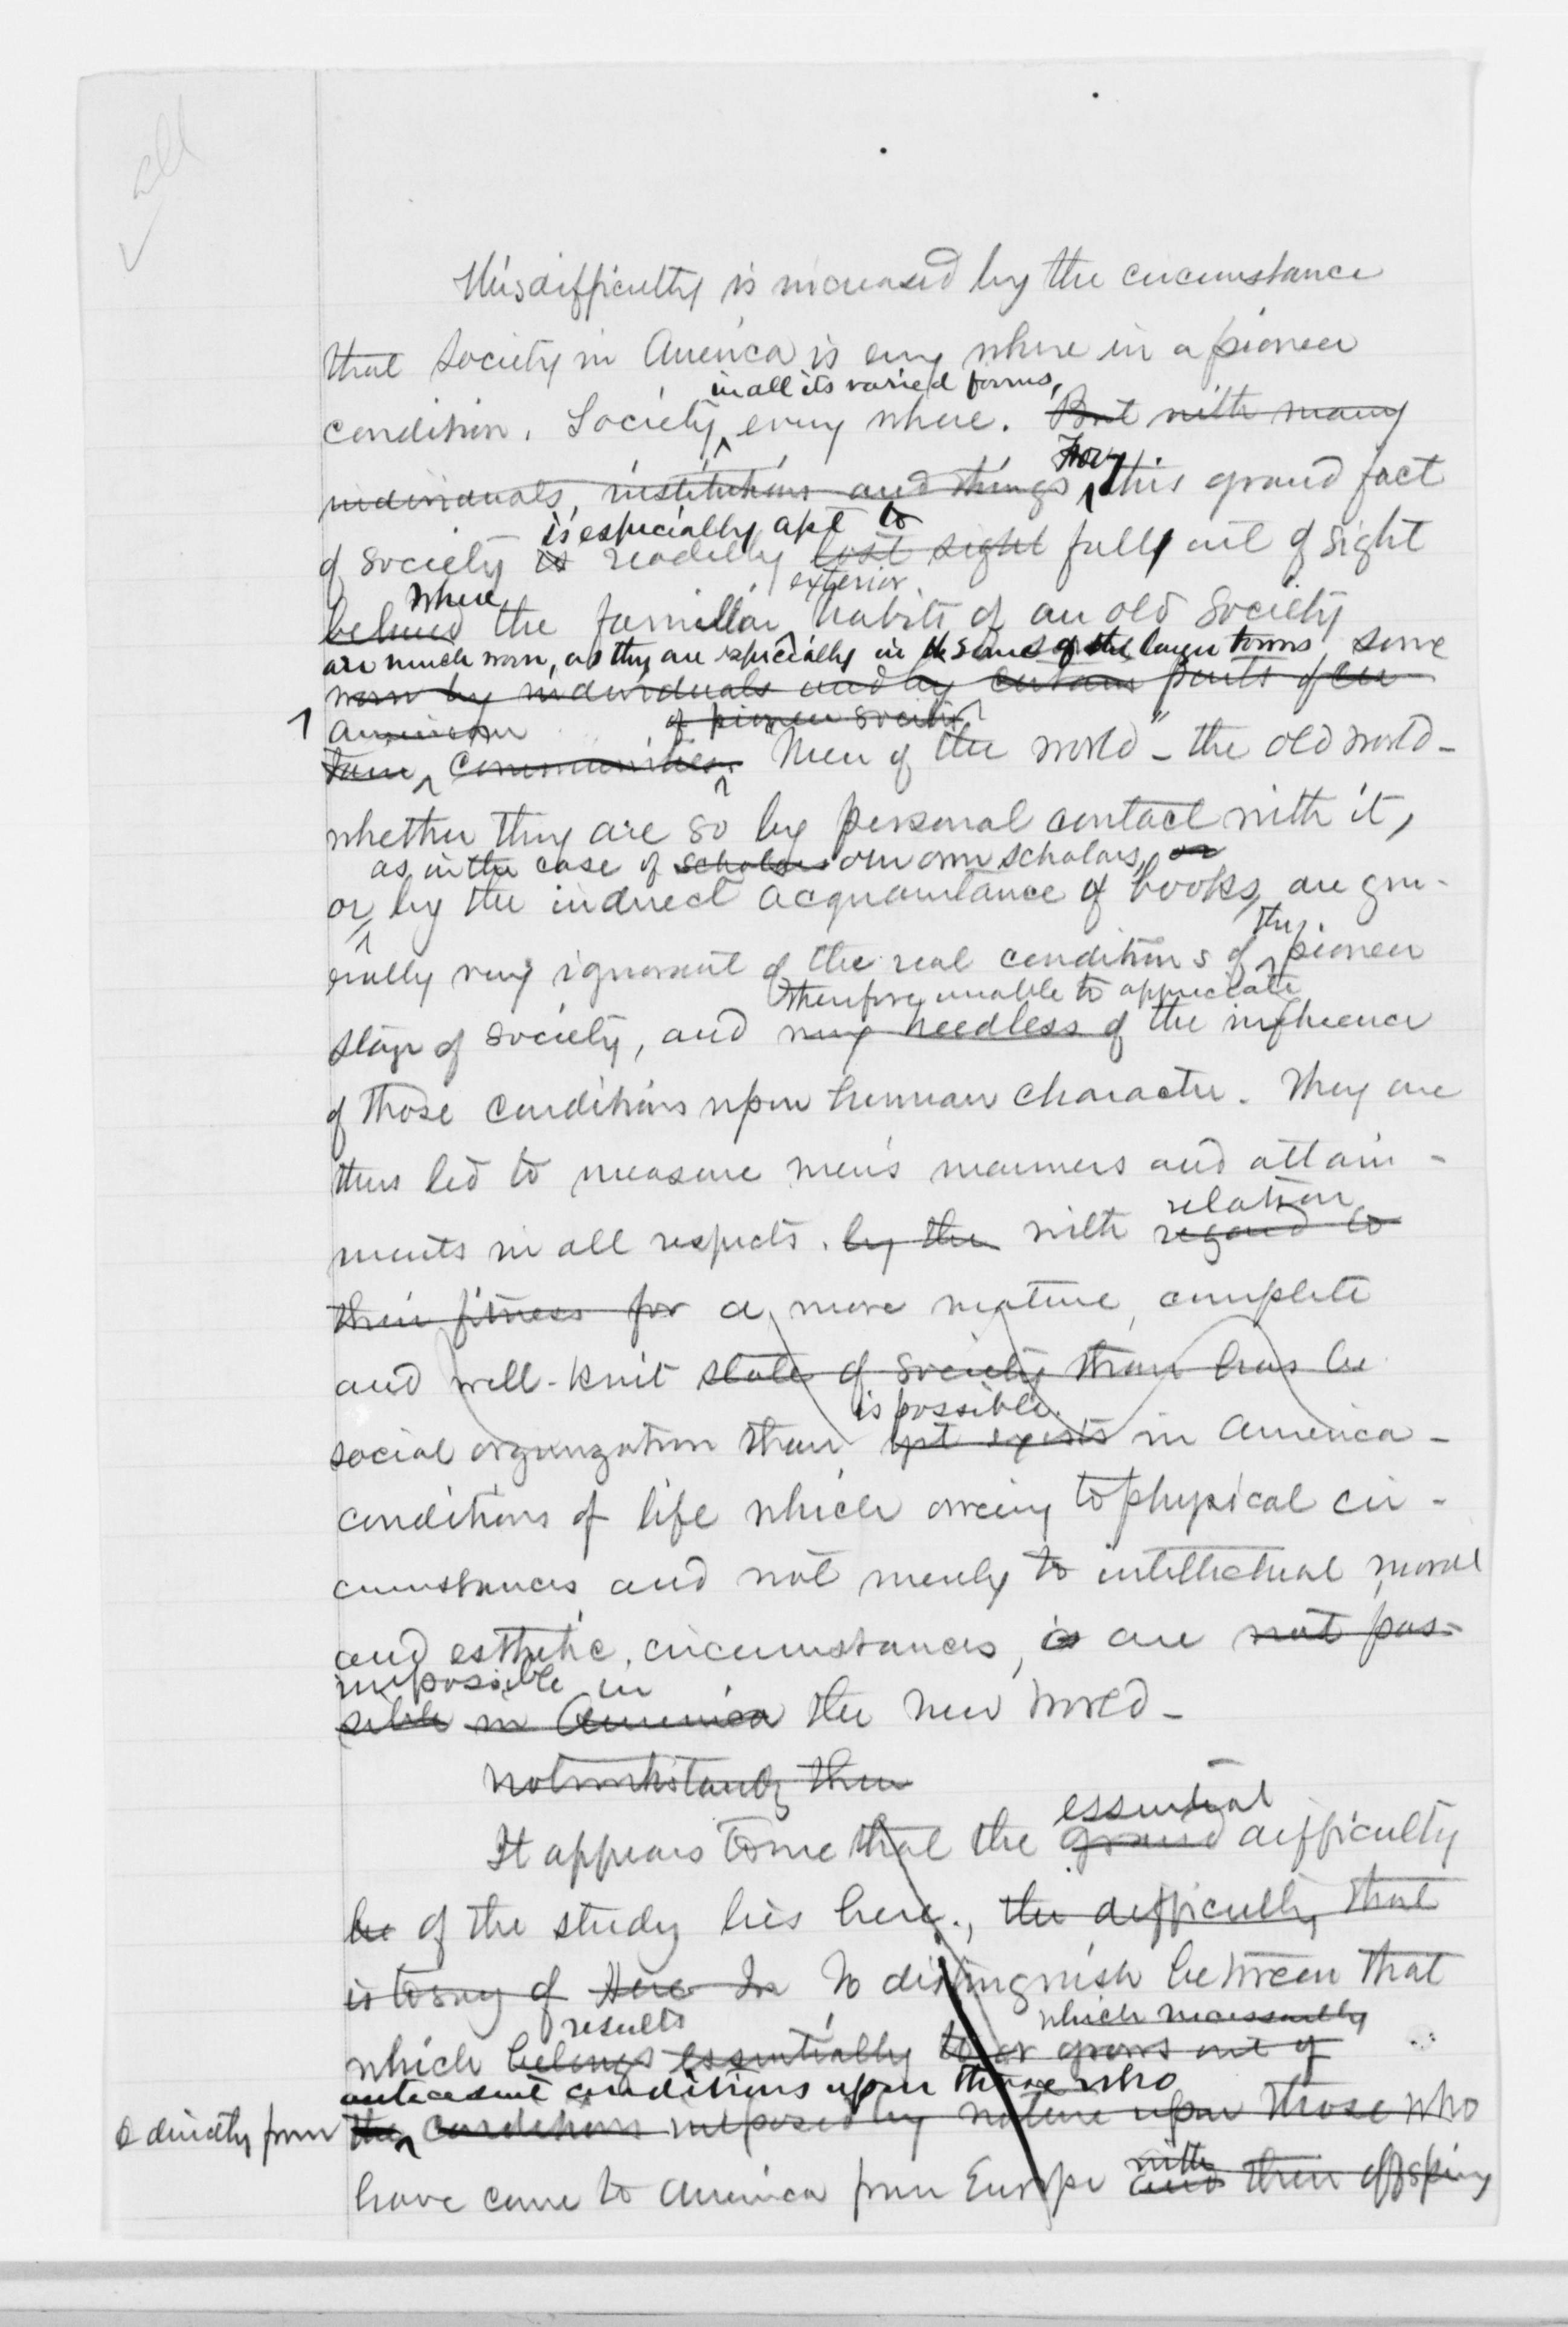 all
This difficulty is increased by the circumstance
that Society in America is every where in a pioneer
in all its varied forms,
condition. Society, every where. But with many
individuals, institutions and things this grand fact
is especially apt to
of society is readily lost sight fall out of sight
where exterior
behind the familiar habits of an old Society
are much worn, as they are especially in some of the larger towns, some
worn by individuals and by certain parts of cer-
American of pioneer society
tain communities. Men of the world" - the old world -
whether they are so by personal contact with it,
as in the case of scholars our own scholars, or
or, by the indirect acquaintance of books, are gen-
the
erally very ignorant of the real conditions of pioneer
therefore unable to appreciate
stage of society, and very heedless of the influence
of those conditions upon human character. They are
thus led to measure men's manners and attain-
relation
ments in all respects, by the with regard to
their fitness for a more mature, complete
and well-knit state of society than has be
is possible.
social organization than yet exists in America -
conditions of life which owing to physical cir-
cumstances and not merely to intellectual, moral
and esthetic, circumstances, is are not pos-
impossible in
sible in America the new world -
notwithstanding then
essential
It appears to me that the grand difficulty
be of the study lies here., the difficulty that
is to say of Here In To distinguish between that
results which necessarily
which belongs essentially to or grows out of
antecedent conditions upon those who
directly from the conditions imposed by nature upon those who
with
have come to America from Europe and their offspring